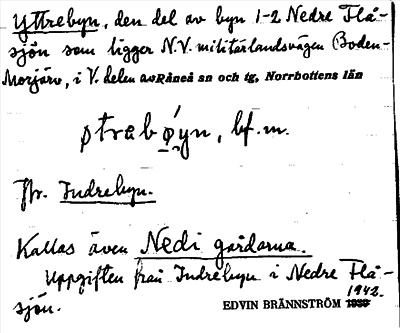 Yttrebyn, den del av byn 1-2 Nedre Flå-
sjön som ligger N.V. militärlandsvägen Boden-
Morjärv, i V. delen av Råneå sn och tg, Norrbottens län
ýtrabǿ̣yn, bf. m.
Jfr. Indrebyn.
Kallas även Nedi gårdarna.
Uppgiften från Indrebyn i Nedre Flå-
sjön.
1942.
EDVIN BRÄNNSTRÖM 1939